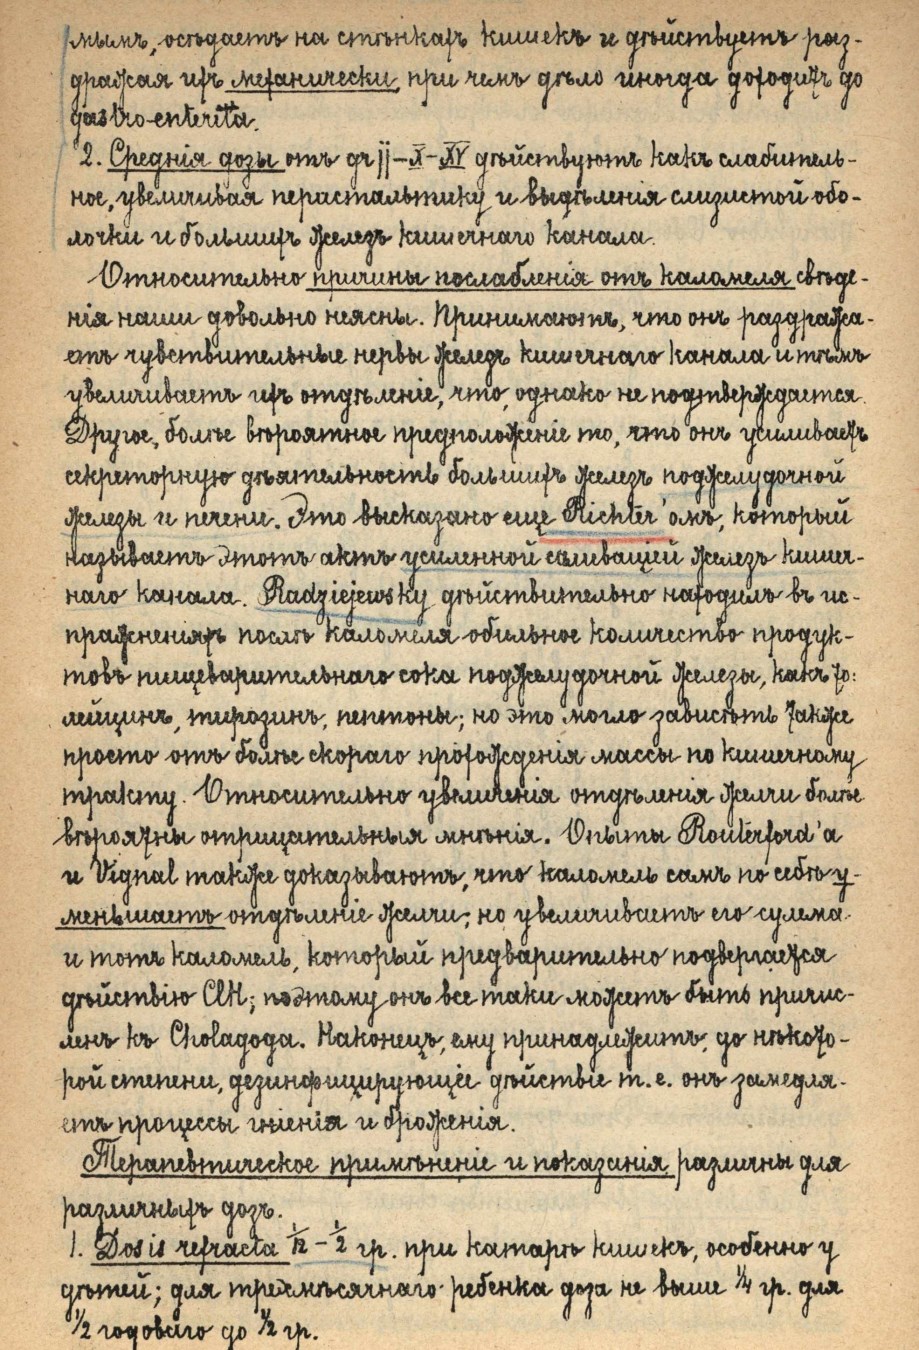 мымъ, осѣдаетъ на стѣнкахъ кишекъ и дѣйствуетъ раз-
дражая ихъ механически, при чемъ дѣло иногда доходитъ до
gastro-enterit'а.
2. Среднія дозы отъ gr jj – X – XV дѣйствуютъ какъ слабитель-
ное, увеличивая перистальтику и выдѣленія слизистой обо-
лочки и большихъ железъ кишечнаго канала.
Относительно причины послабленія отъ каломеля свѣде-
нія наши довольно неясны. Принимаютъ, что онъ раздража-
етъ чувствительные нервы железъ кишечнаго канала и тѣмъ
увеличиваетъ ихъ отдѣленіе, что, однако не подтверждается.
Другое, болѣе вѣроятное предположеніе то, что онъ усиливаетъ
секреторную дѣятельность большихъ железъ поджелудочной
железы и печени. Это высказано еще Richter'омъ, который
называетъ этотъ актъ усиленной саливаціей железъ кишеч-
наго канала. Radziejewsky дѣйствительно находилъ въ ис-
пражненіяхъ послѣ каломеля обильное количество продук-
товъ пищеварительнаго сока поджелудочной железы, какъ то:
лейцинъ, тирозинъ, пептоны; но это могло зависѣть также
просто отъ болѣе скораго прохожденія массы по кишечному
тракту. Относительно увеличенія отдѣленія желчи болѣе
вѣроятны отрицательныя мнѣнія. Опыты Routerford'а
и Vignal также доказываютъ, что каломель самъ по себѣ у-
меньшаетъ отдѣленіе желчи; но увеличиваетъ его сулема
и тотъ каломель, который предварительно подвергается
дѣйствію ClH; поэтому онъ все таки можетъ быть причис-
ленъ къ Cholagoga. Наконецъ, ему принадлежитъ, до нѣкото-
рой степени, дезинфицирующее дѣйствіе т.е. онъ замедля-
етъ процессы гніенія и броженія.
Терапевтическое примѣненіе и показанія различны для
различныхъ дозъ.
1. Dosis refracta 1/12 – 1/2 гр. при катарѣ кишекъ, особенно у
дѣтей; для трехмѣсячнаго ребенка доза не выше 1/4 гр. для
1/2 годоваго до 1/2 гр.